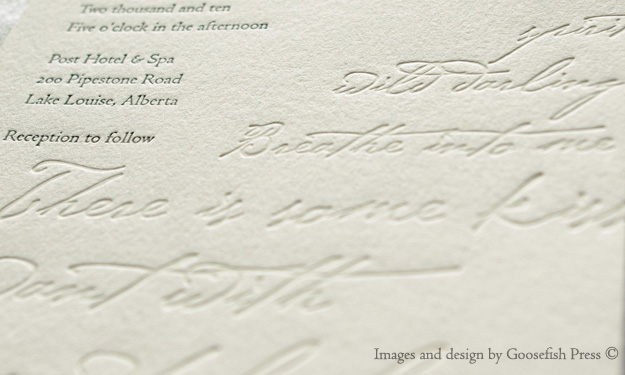 Two thousand and ten
Five o'clock in the afternoon
Post Hotel & Spa
200 Pipestone Road
Lake Louise, Alberta
Reception to follow
wild darling
Breathe into me
There is some kiss
want with
Images and design by Goosefish Press ©